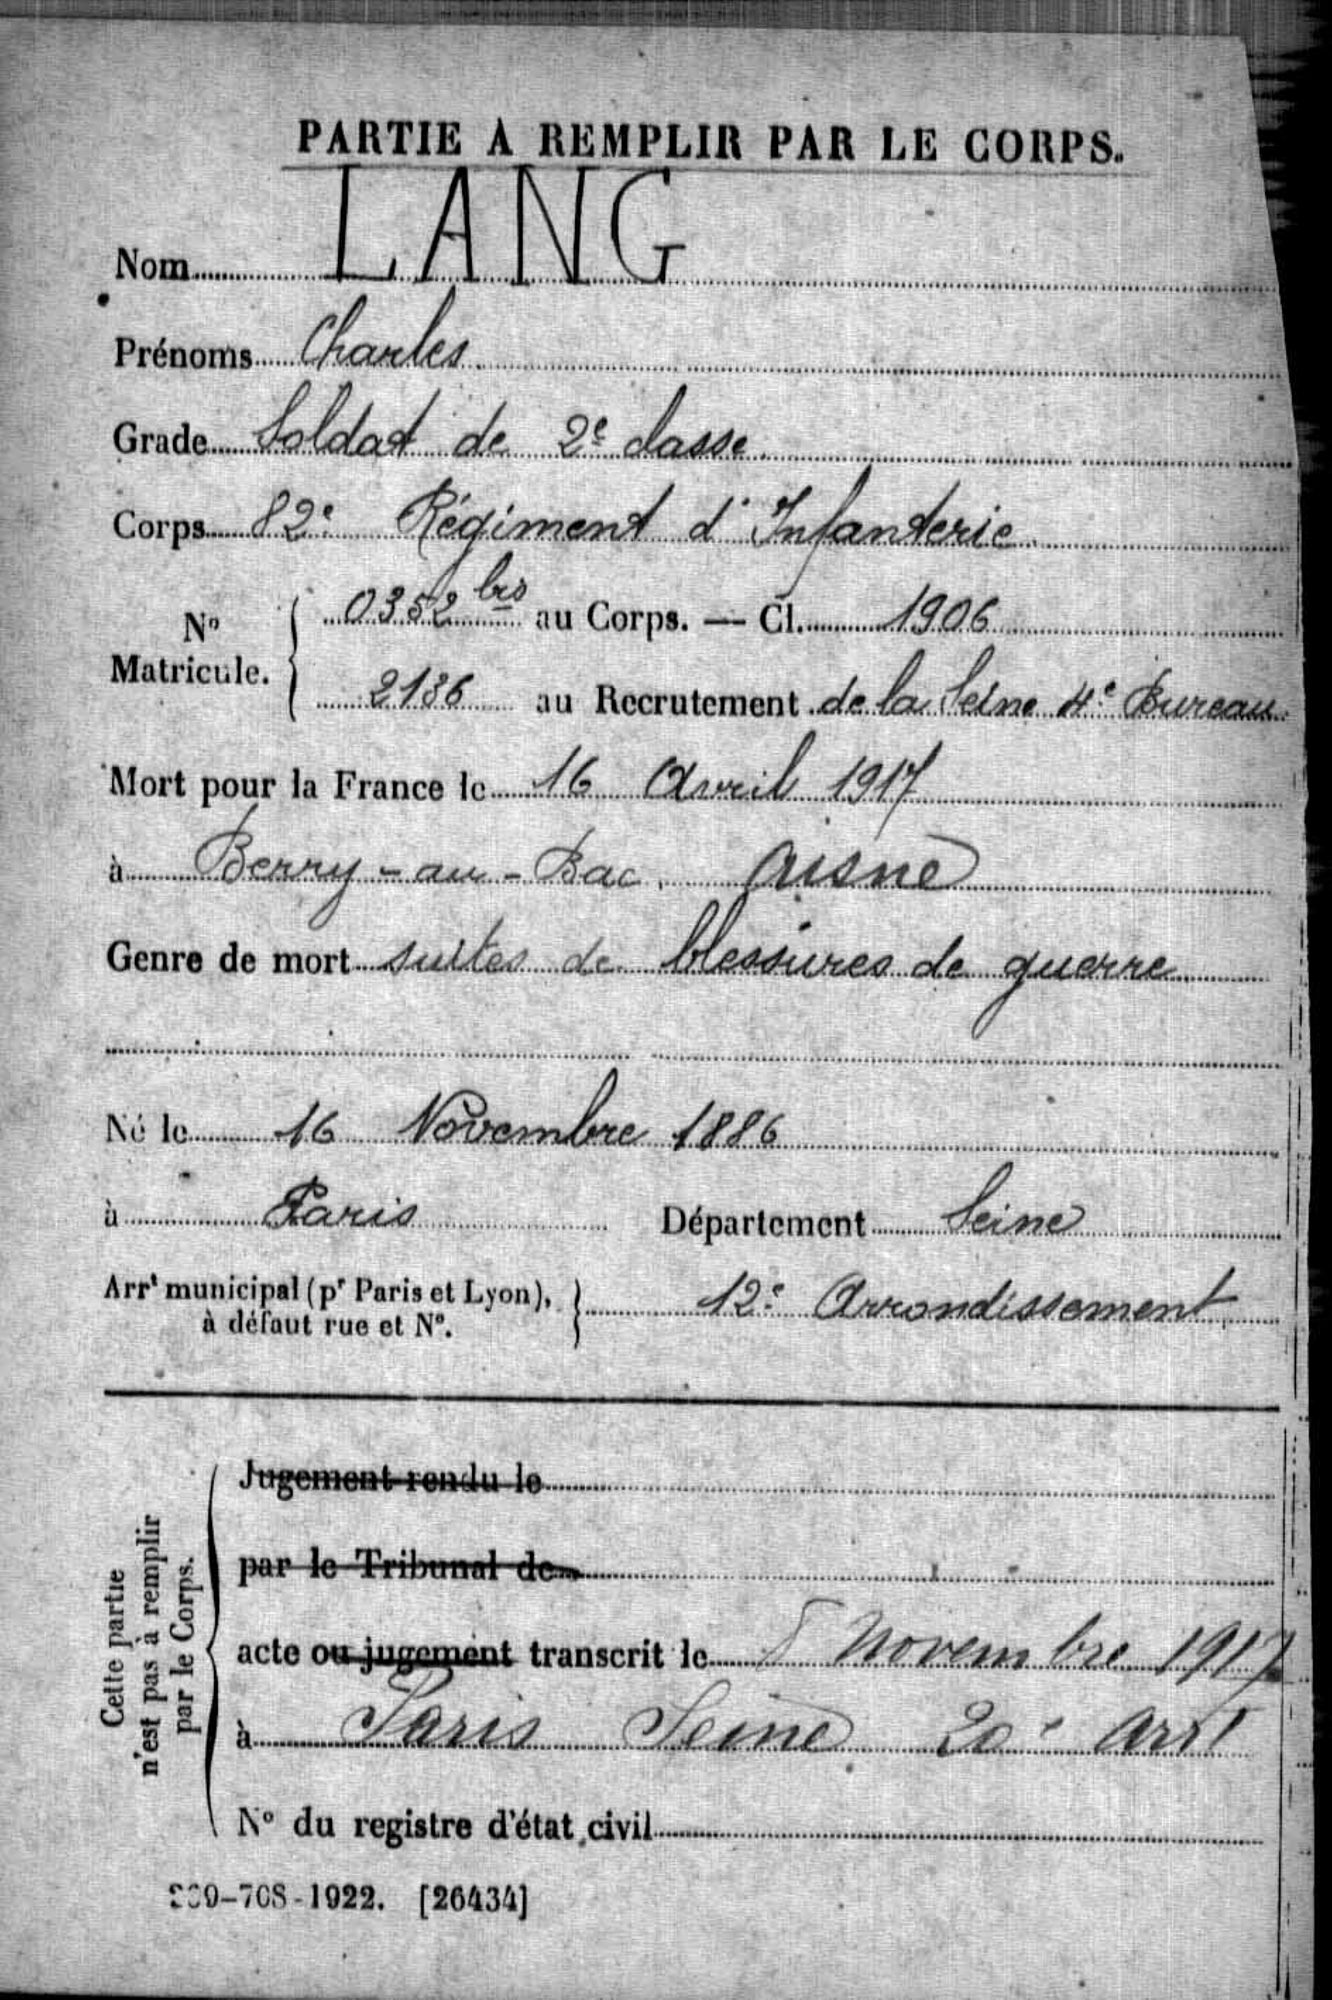 PARTIE A REMPLIR PAR LE CORPS.
Nom LANG
Prénoms Charles
Grade Soldat de 2e classe
Corps 82e Régiment d'Infanterie
No Matricule. { 0352 bis au Corps. — Cl. 1906
2136 au Recrutement de la Seine 4e Bureau
Mort pour la France le 16 Avril 1917
à Berry-au-Bac, Aisne
Genre de mort suites de blessures de guerre
Né le 16 Novembre 1886
à Paris Département Seine
Arrt municipal (pr Paris et Lyon), à défaut rue et No. } 12e Arrondissement
Cette partie n'est pas à remplir par le Corps.
Jugement rendu le
par le Tribunal de
acte ou jugement transcrit le 8 Novembre 1917
à Paris Seine 20e Arrt
No du registre d'état civil
-708-1922. [26434]